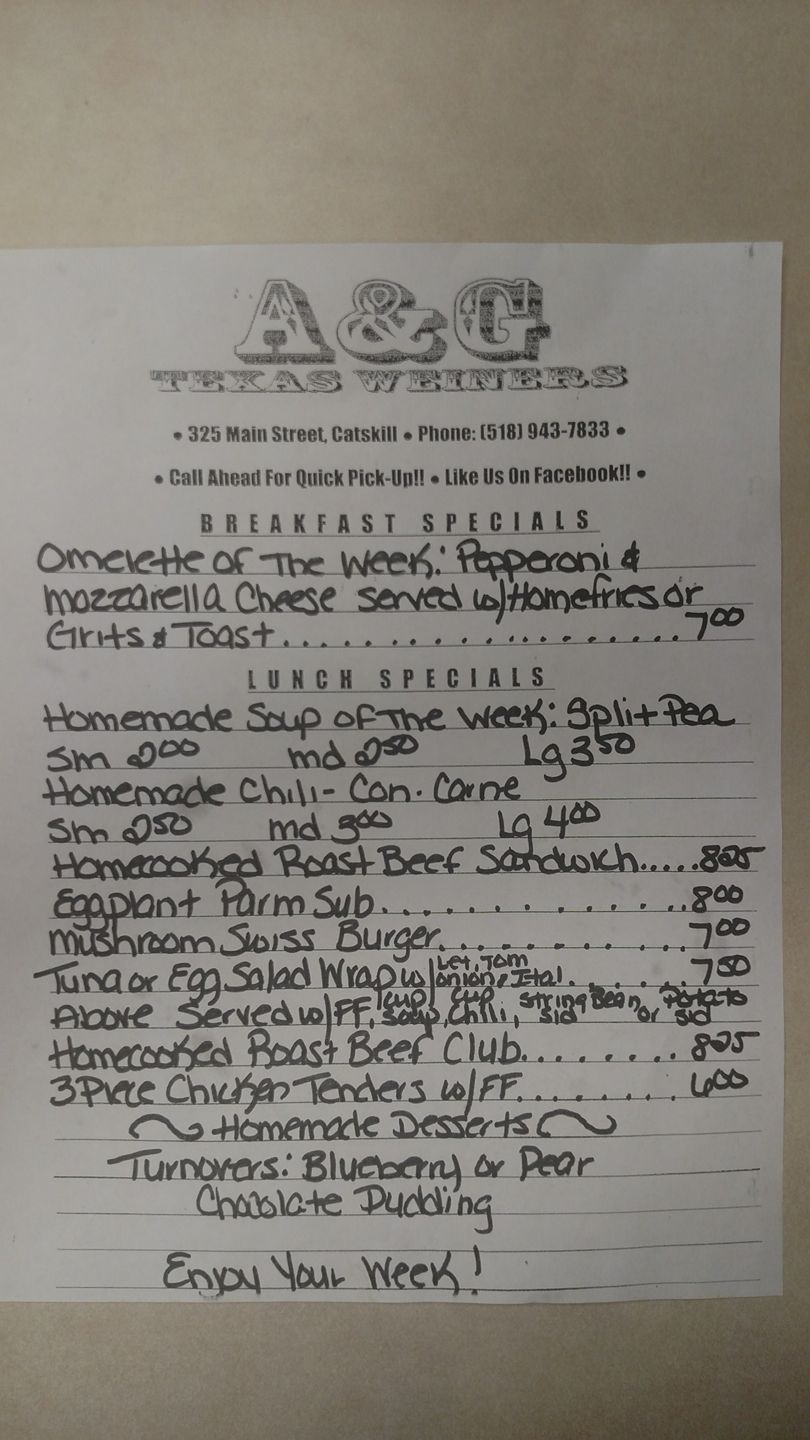 A&G
TEXAS WEINERS
• 325 Main Street, Catskill • Phone: (518) 943-7833 •
• Call Ahead For Quick Pick-Up!! • Like Us On Facebook!! •
BREAKFAST SPECIALS
Omelette of The Week: Pepperoni &
mozzarella Cheese served w/Homefries or
Grits & Toast....................7.00
LUNCH SPECIALS
Homemade Soup of The Week: Split Pea
Sm 2.00 md 2.50 Lg 3.50
Homemade Chili-Con-Carne
Sm 2.50 md 3.00 Lg 4.00
Homecooked Roast Beef Sandwich.....8.25
Eggplant Parm Sub..............8.00
Mushroom Swiss Burger...........7.00
Tuna or Egg Salad Wrap w/Let, Tom, onion, Ital......7.50
Above Served w/FF, cup soup, cup chili, String Bean Sld or Potato Sld
Homecooked Roast Beef Club........8.25
3 Piece Chicken Tenders w/FF.........6.00
~ Homemade Desserts ~
Turnovers: Blueberry or Pear
Chocolate Pudding
Enjoy Your Week!